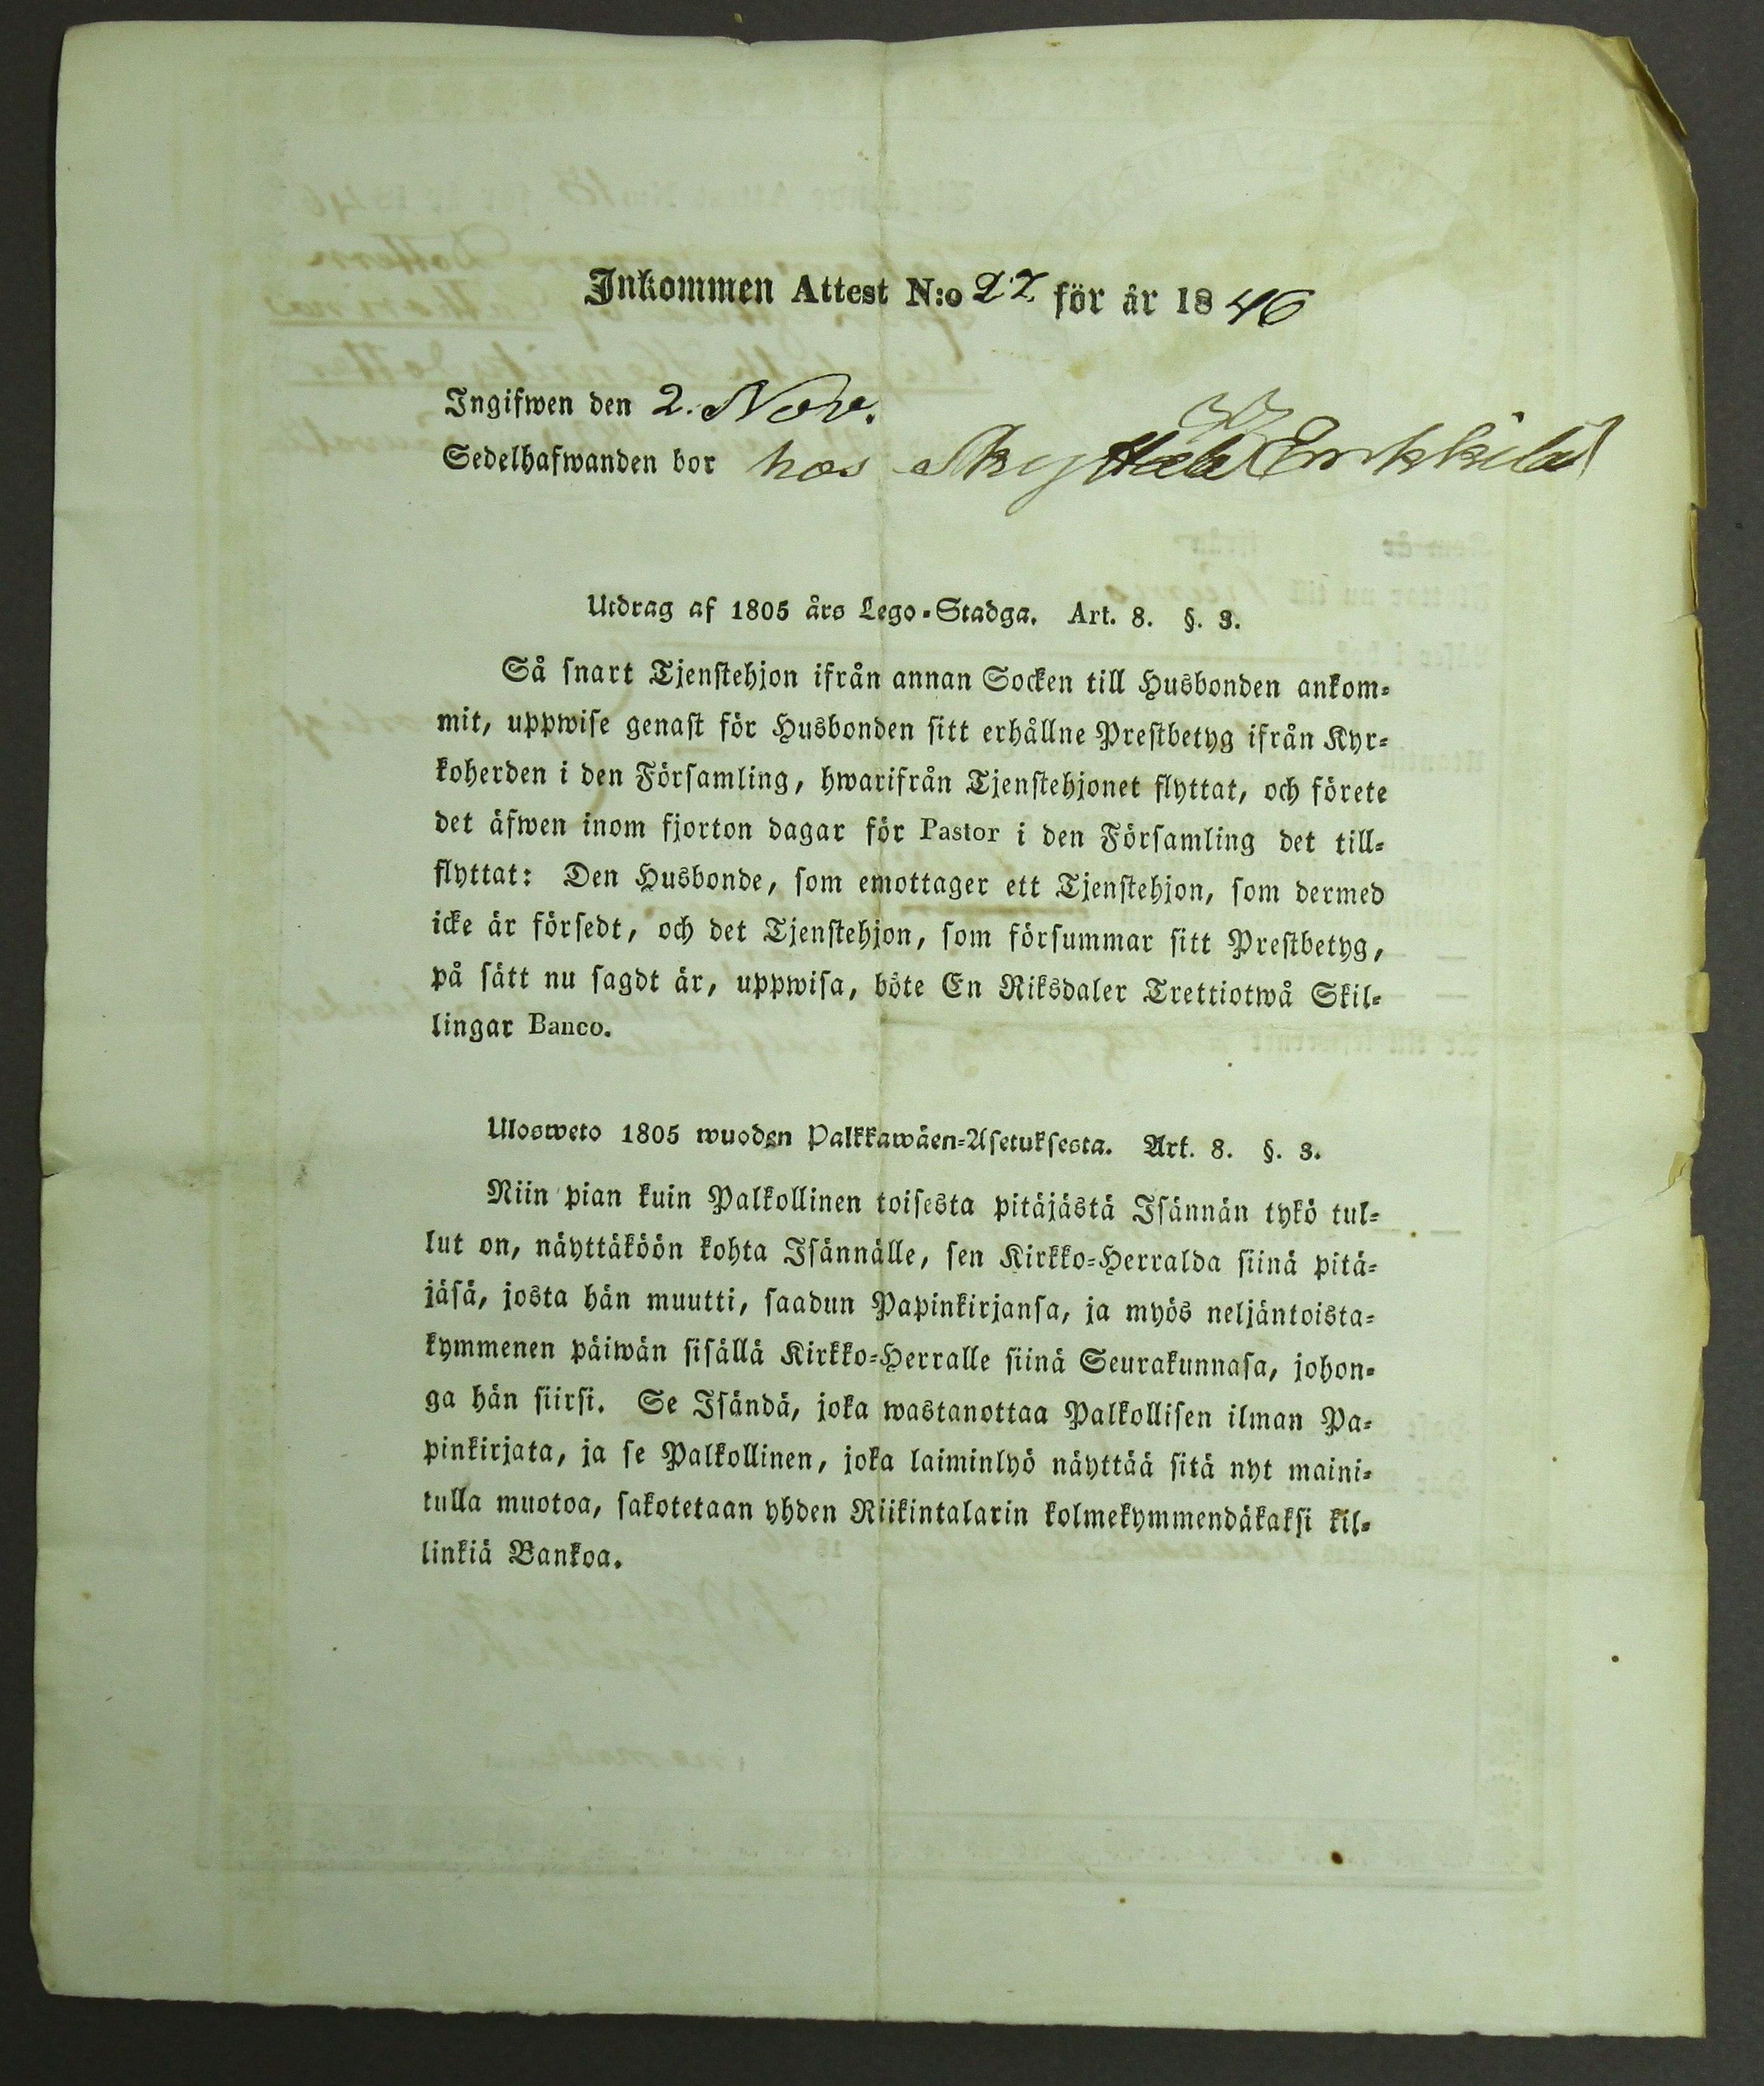 Inkommen Attest N:o 27 för år 1846
Ingifwen den 2. Nov.
Sedelhafwanden bor hos Erkkilä
Utdrag af 1805 års Lego-Stadga. Art. 8. §. 3.
Så snart Tjenstehjon ifrån annan Socken till Husbonden ankom-
mit, uppwise genast för Husbonden sitt erhållne Prestbetyg ifrån Kyr-
koherden i den Församling, hwarifrån Tjenstehjonet flyttat, och förete
det äfwen inom fjorton dagar för Pastor i den Församling det till-
flyttat: Den Husbonde, som emottager ett Tjenstehjon, som dermed
icke är försedt, och det Tjenstehjon, som försummar sitt Prestbetyg,
på sätt nu sagdt är, uppwisa, böte En Riksdaler Trettiotwå Skil-
lingar Banco.
Ulosweto 1805 wuoden Palkkawäen-Asetuksesta. Art. 8. §. 3.
Niin pian kuin Palkollinen toisesta pitäjästä Isännän tykö tul-
lut on, näyttäköön kohta Isännälle, sen Kirkko-Herralda siinä pitä-
jäsä, josta hän muutti, saadun Papinkirjansa, ja myös neljäntoista-
kymmenen päiwän sisällä Kirkko-Herralle siinä Seurakunnasa, johon-
ga hän siirsi. Se Isändä, joka wastanottaa Palkollisen ilman Pa-
pinkirjata, ja se Palkollinen, joka laiminlyö näyttää sitä nyt maini-
tulla muotoa, sakotetaan yhden Riikintalarin kolmekymmendäkaksi kil-
linkiä Bankoa.